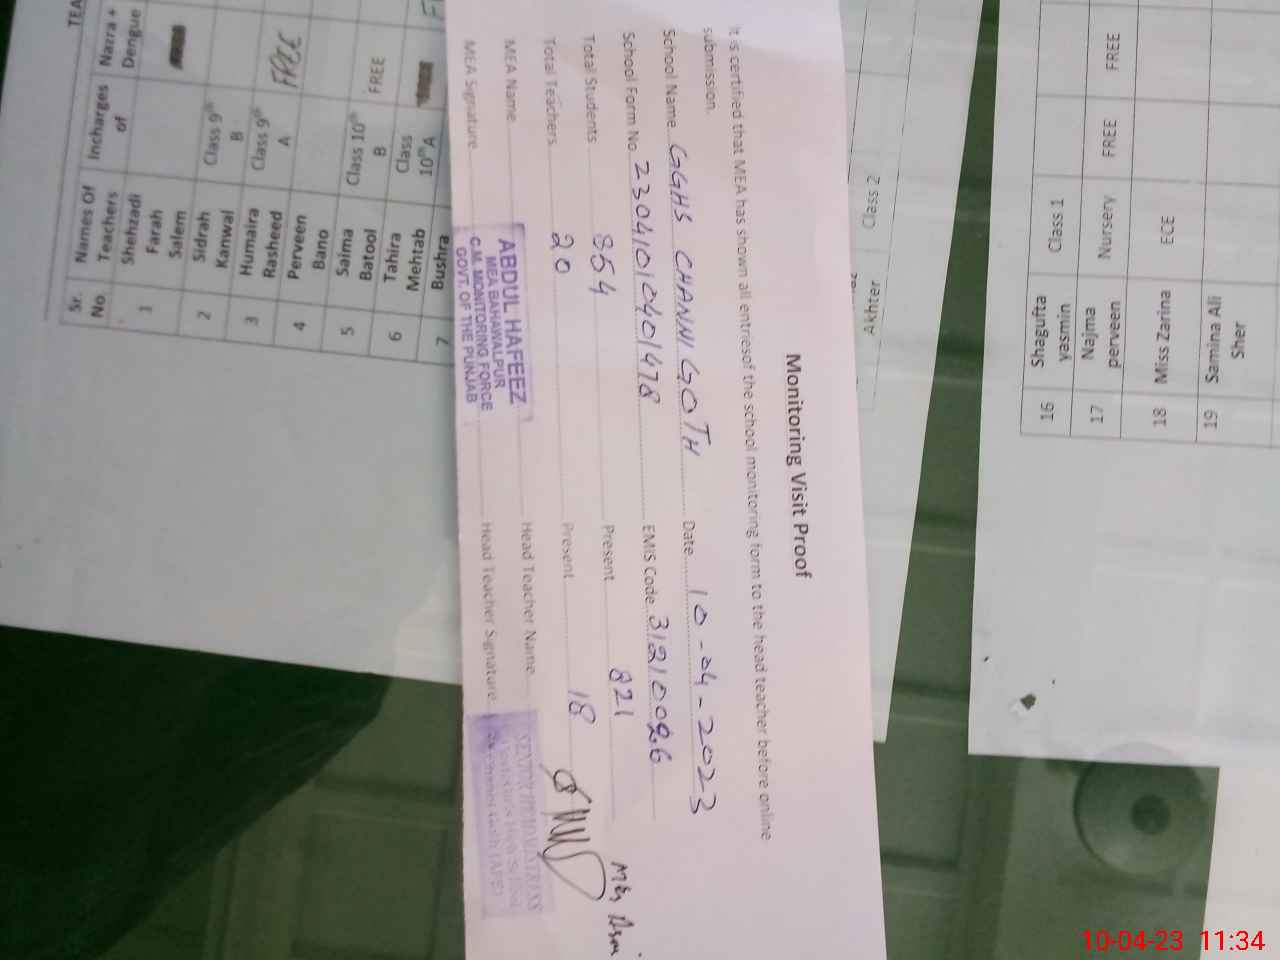 Monitoring Visit Proof
It is certified that MEA has shown all entriesof the school monitoring form to the head teacher before online
submission.
School Name GGHS CHANNI GOTH Date 10-04-2023
School Form No. 23041010401478 EMIS Code 31210026
Total Students 854 Present 821
Total Teachers 20 Present 18
MEA Name Head Teacher Name
MEA Signature Head Teacher Signature
ABDUL HAFEEZ
MEA BAHAWALPUR
C.M. MONITORING FORCE
GOVT. OF THE PUNJAB
TEA
Sr. No. Names Of Teachers Incharges of Nazra + Dengue
1 Shehzadi Farah Salem
2 Sidrah Kanwal Class 9th B
3 Humaira Rasheed Class 9th A
4 Perveen Bano FREE
5 Saima Batool Class 10th B FREE
6 Tahira Mehtab Class 10th A
7 Bushra
Akhter Class 2
16 Shagufta yasmin Class 1
17 Najma perveen Nursery FREE FREE
18 Miss Zarina ECE
19 Samina Ali Sher
10-04-23 11:34